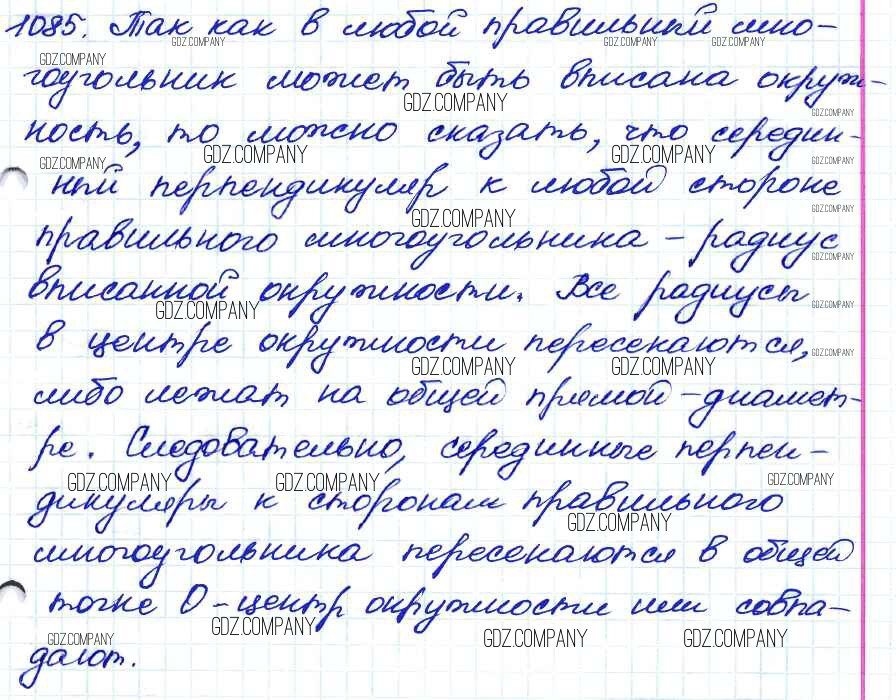 1085. Так как в любой правильный мно-
гоугольник может быть вписана окруж-
ность, то можно сказать, что середин-
ный перпендикуляр к любой стороне
правильного многоугольника – радиус
вписанной окружности. Все радиусы
в центре окружности пересекаются,
либо лежат на общей прямой – диамет-
ре. Следовательно, серединные перпен-
дикуляры к сторонам правильного
многоугольника пересекаются в общей
точке О – центр окружности или совпа-
дают.
GDZ.COMPANY GDZ.COMPANY GDZ.COMPANY
GDZ.COMPANY
GDZ.COMPANY
GDZ.COMPANY
GDZ.COMPANY GDZ.COMPANY GDZ.COMPANY GDZ.COMPANY
GDZ.COMPANY GDZ.COMPANY
GDZ.COMPANY
GDZ.COMPANY GDZ.COMPANY
GDZ.COMPANY
GDZ.COMPANY GDZ.COMPANY
GDZ.COMPANY GDZ.COMPANY GDZ.COMPANY
GDZ.COMPANY
GDZ.COMPANY GDZ.COMPANY GDZ.COMPANY GDZ.COMPANY